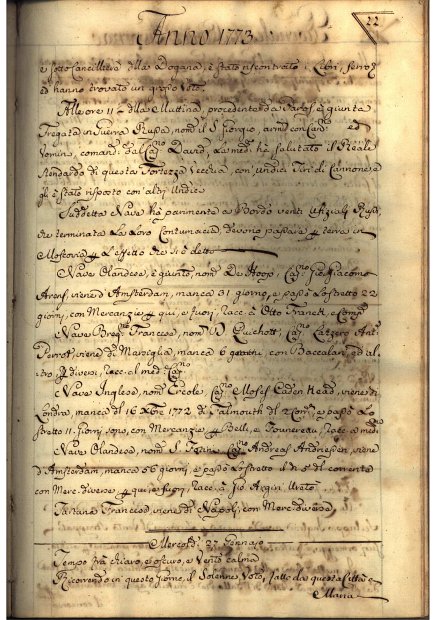 22
Anno 1773
e sotto Cancelliere della Dogana, è stato riscontrato i Libri,
ed hanno trovato un grosso Voto.
Alle ore 11 della Mattina, procedente da Paros è giunta
Fregata in Guerra Russa, nom.ta il S. Giorgio, arm.ta con Cann.i ed
Uomini, comand. dal Cap.no David, la med.a ha salutato il Reale
Stendardo di questa Fortezza Vecchia, con undici Tiri di Cannone, e
gli è stato risposto con altri Undici
Suddetta Nave ha parimente a Bordo venti Ufiziali Russi,
che terminata la Loro Contumacia, devono passare p terra in
Moscovia p l'effetto che si è detto
Nave Olandese, è giunto, nom. De Hoop, Cap.no Giacomo
Arens, viene d'Amsterdam, manca 31 giorno, e passò Lo stretto 22
giorni, con Mercanzie p qui, e fuori, racc. a Otto Franck, e Comp.
Nave Francese, nom. D. Quichott, Cap.no Lazzero Ant.
Perrot, viene di Marsiglia, manca 6 giorni, con Baccalari, ed al-
tro p diversi, racc. al med. Cap.no
Nave Inglese, nom. Creole, Cap.no Moses Caden Head, viene di
Londra, manca del 16 Xbre 1772 di Falmouth del 2 Corr.e e passò Lo
stretto 11 giorni sono, con Mercanzie p Belli, e Fonnereau, racc. a med.i
Nave Olandese, nom. S. Cap.no Andreas Andriessen, viene
d'Amsterdam, manca 56 giorni, e passò Lo stretto il dì 5 del corrente
con Merc. diverse p qui, e fuori, racc. a Gio. Argiri Vreto
Tartana Francese, viene di Napoli, con Merc. diverse
Mercoldì 27 Gennaio
Tempo frà chiaro, e oscuro, e Vento calma
Ricorrendo in questo giorno, il Solennes Voto, fatto da questa Città a
Maria